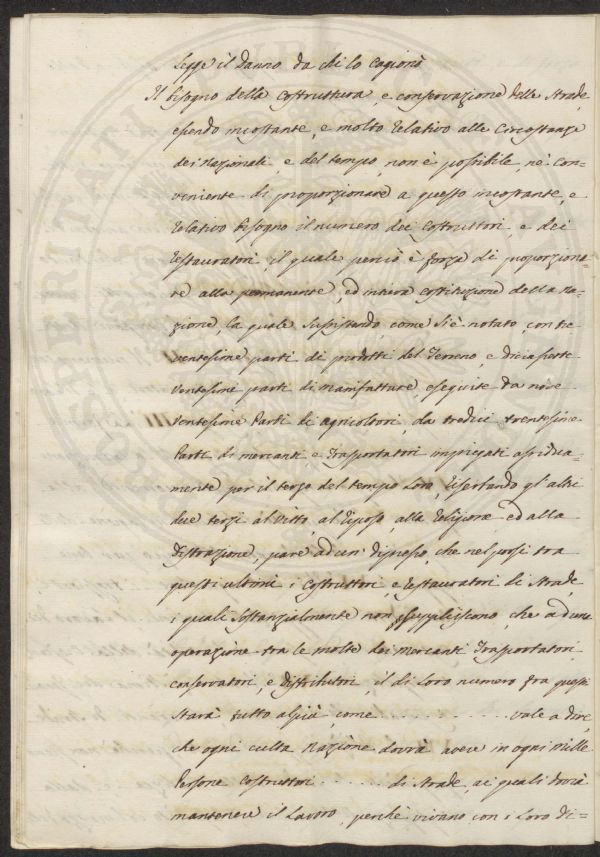 legge il danno da chi lo cagionò
Il bisogno della costruttura, e conservazione delle strade
essendo incostante, e molto relativo alle circostanze
dei Nazionali, e del tempo, non è possibile, nè con=
veniente di proporzionare a questo incostante, e
relativo bisogno il numero dei costruttori, e dei
restauratori, il quale perciò è forza di proporziona=
re alla permanente, ed intiera costituzione della na=
zione, la quale sussistendo, come si è notato, con tre
ventesime parti di prodotti del Terreno, e dieciasette
ventesime parti di manifatture, eseguite da nove
ventesime Parti di agricoltori, da tredici trentesime
Parti di mercanti e Trasportatori impiegati assidua=
mente per il terzo del tempo loro, riserbando gl'altri
due terzi al vitto, al riposo, alla religione ed alla
distrazione, pare ad un dipresso, che nel porsi tra
questi ultimi i costruttori, e restauratori di strade,
i quali sostanzialmente non suppliscono, che ad una
operazione tra le molte dei mercanti Trasportatori
conservatori, e distributori, il di loro numero fra questi
starà tutto al più, come . . . . . . . . vale a dire,
che ogni culta Nazione dovrà avere in ogni mille
Persone costruttori . . . . . . di strade, ai quali dovrà
mantenere il lavoro, perchè vivano con i loro di=
PROSPERITATI